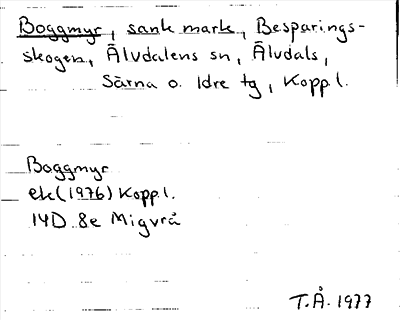 Boggmyr, sank mark, Besparings-
skogen, Älvdalens sn, Älvdals,
Särna o. Idre tg, Kopp.l.
Boggmyr
ek (1976) Kopp.l.
14D 8e Migvrå
T.Å. 1977